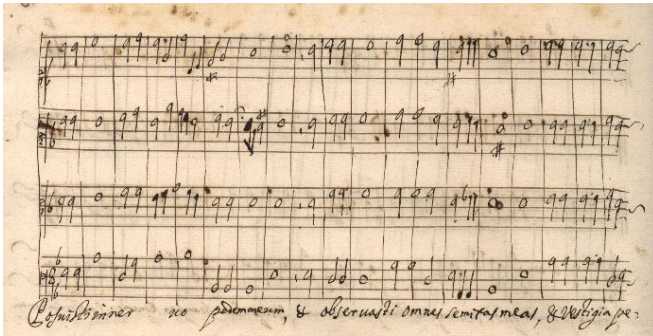 Posuisti in ner uo pedem meum, & observasti omnes semitas meas, & Vestigia pe-